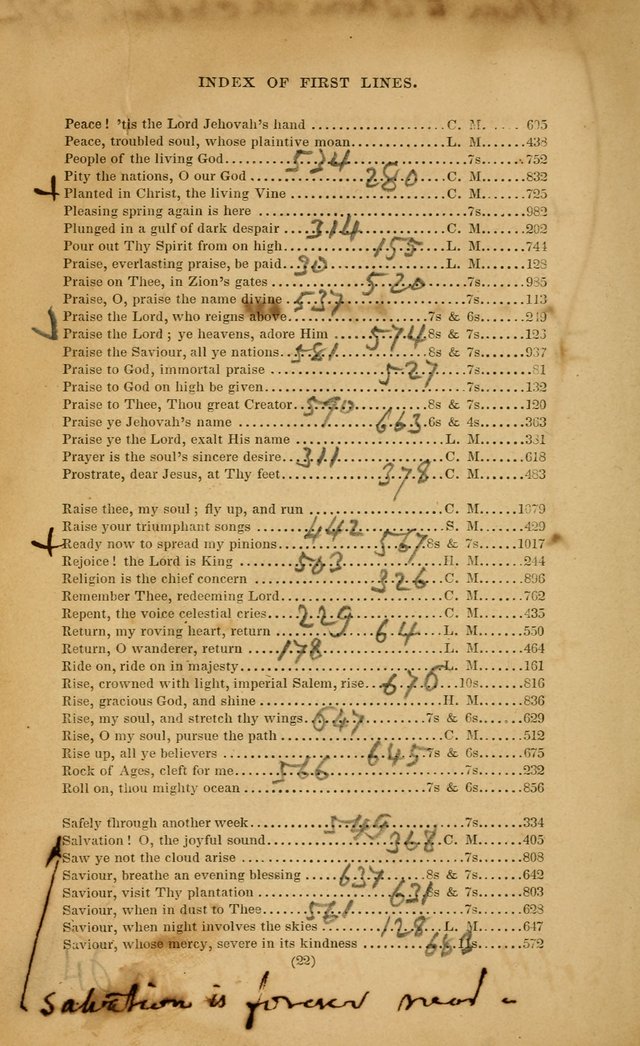 INDEX OF FIRST LINES.
Peace! 'tis the Lord Jehovah's hand ..................C. M. .....605
Peace, troubled soul, whose plaintive moan............L. M.......438
People of the living God.......534................7s........752
Pity the nations, O our God ..........280......C. M.......832
Planted in Christ, the living Vine ...................C. M.......725
Pleasing spring again is here .........................7s.........982
Plunged in a gulf of dark despair ...314..............C. M.......202
Pour out Thy Spirit from on high.........155....L. M.......744
Praise, everlasting praise, be paid..30..............L. M.......128
Praise on Thee, in Zion's gates ..........520......7s.........985
Praise, O, praise the name divine .537..............7s.........113
Praise the Lord, who reigns above...................7s & 6s.......219
Praise the Lord; ye heavens, adore Him .....574.8s & 7s.......123
Praise the Saviour, all ye nations..581............8s & 7s.......937
Praise to God, immortal praise ............527....7s..........81
Praise to God on high be given.........................7s.........132
Praise to Thee, Thou great Creator..590..........8s & 7s.......120
Praise ye Jehovah's name ...............663.6s & 4s.......363
Praise ye the Lord, exalt His name ...................L. M.......331
Prayer is the soul's sincere desire...311............C. M.......618
Prostrate, dear Jesus, at Thy feet..........378..C. M.......483
Raise thee, my soul; fly up, and run .................C. M......1079
Raise your triumphant songs .......442............S. M.......429
Ready now to spread my pinions..........567.8s & 7s......1017
Rejoice! the Lord is King .......503..............H. M.......244
Religion is the chief concern ............326....C. M.......896
Remember Thee, redeeming Lord.......................C. M.......762
Repent, the voice celestial cries....229............C. M.......435
Return, my roving heart, return ..........64....L. M.......550
Return, O wanderer, return ....178................L. M.......464
Ride on, ride on in majesty...........................L. M.......161
Rise, crowned with light, imperial Salem, rise..676..10s.......816
Rise, gracious God, and shine ........................H. M.......836
Rise, my soul, and stretch thy wings.647..........7s & 6s.......629
Rise, O my soul, pursue the path ....................C. M.......512
Rise up, all ye believers ................645.7s & 6s.......675
Rock of Ages, cleft for me.....566................7s.........232
Roll on, thou mighty ocean .........................7s & 6s.......856
Safely through another week.........549..........7s.........334
Salvation! O, the joyful sound............368.C. M.......405
Saw ye not the cloud arise ...........................7s.........808
Saviour, breathe an evening blessing ....637....8s & 7s.......642
Saviour, visit Thy plantation .............631.8s & 7s.......803
Saviour, when in dust to Thee.....561............7s.........628
Saviour, when night involves the skies .....128..L. M.......647
Saviour, whose mercy, severe in its kindness .......11s.......572
(22)
Salvation is forever